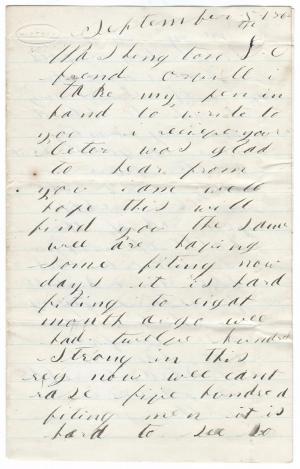 September 5th 186
Washington D C
frend orvill i
take my pen in
hand to write to
you i recieve your
leter was glad
to hear from
you i am well
hope this will
find you the same
well are haping
some fiting now
days it is hard
fiting to eight
month ago well
had twelve hundred
Strong in this
reg now well cant
rase five hundred
fiting men it is
hard to see so